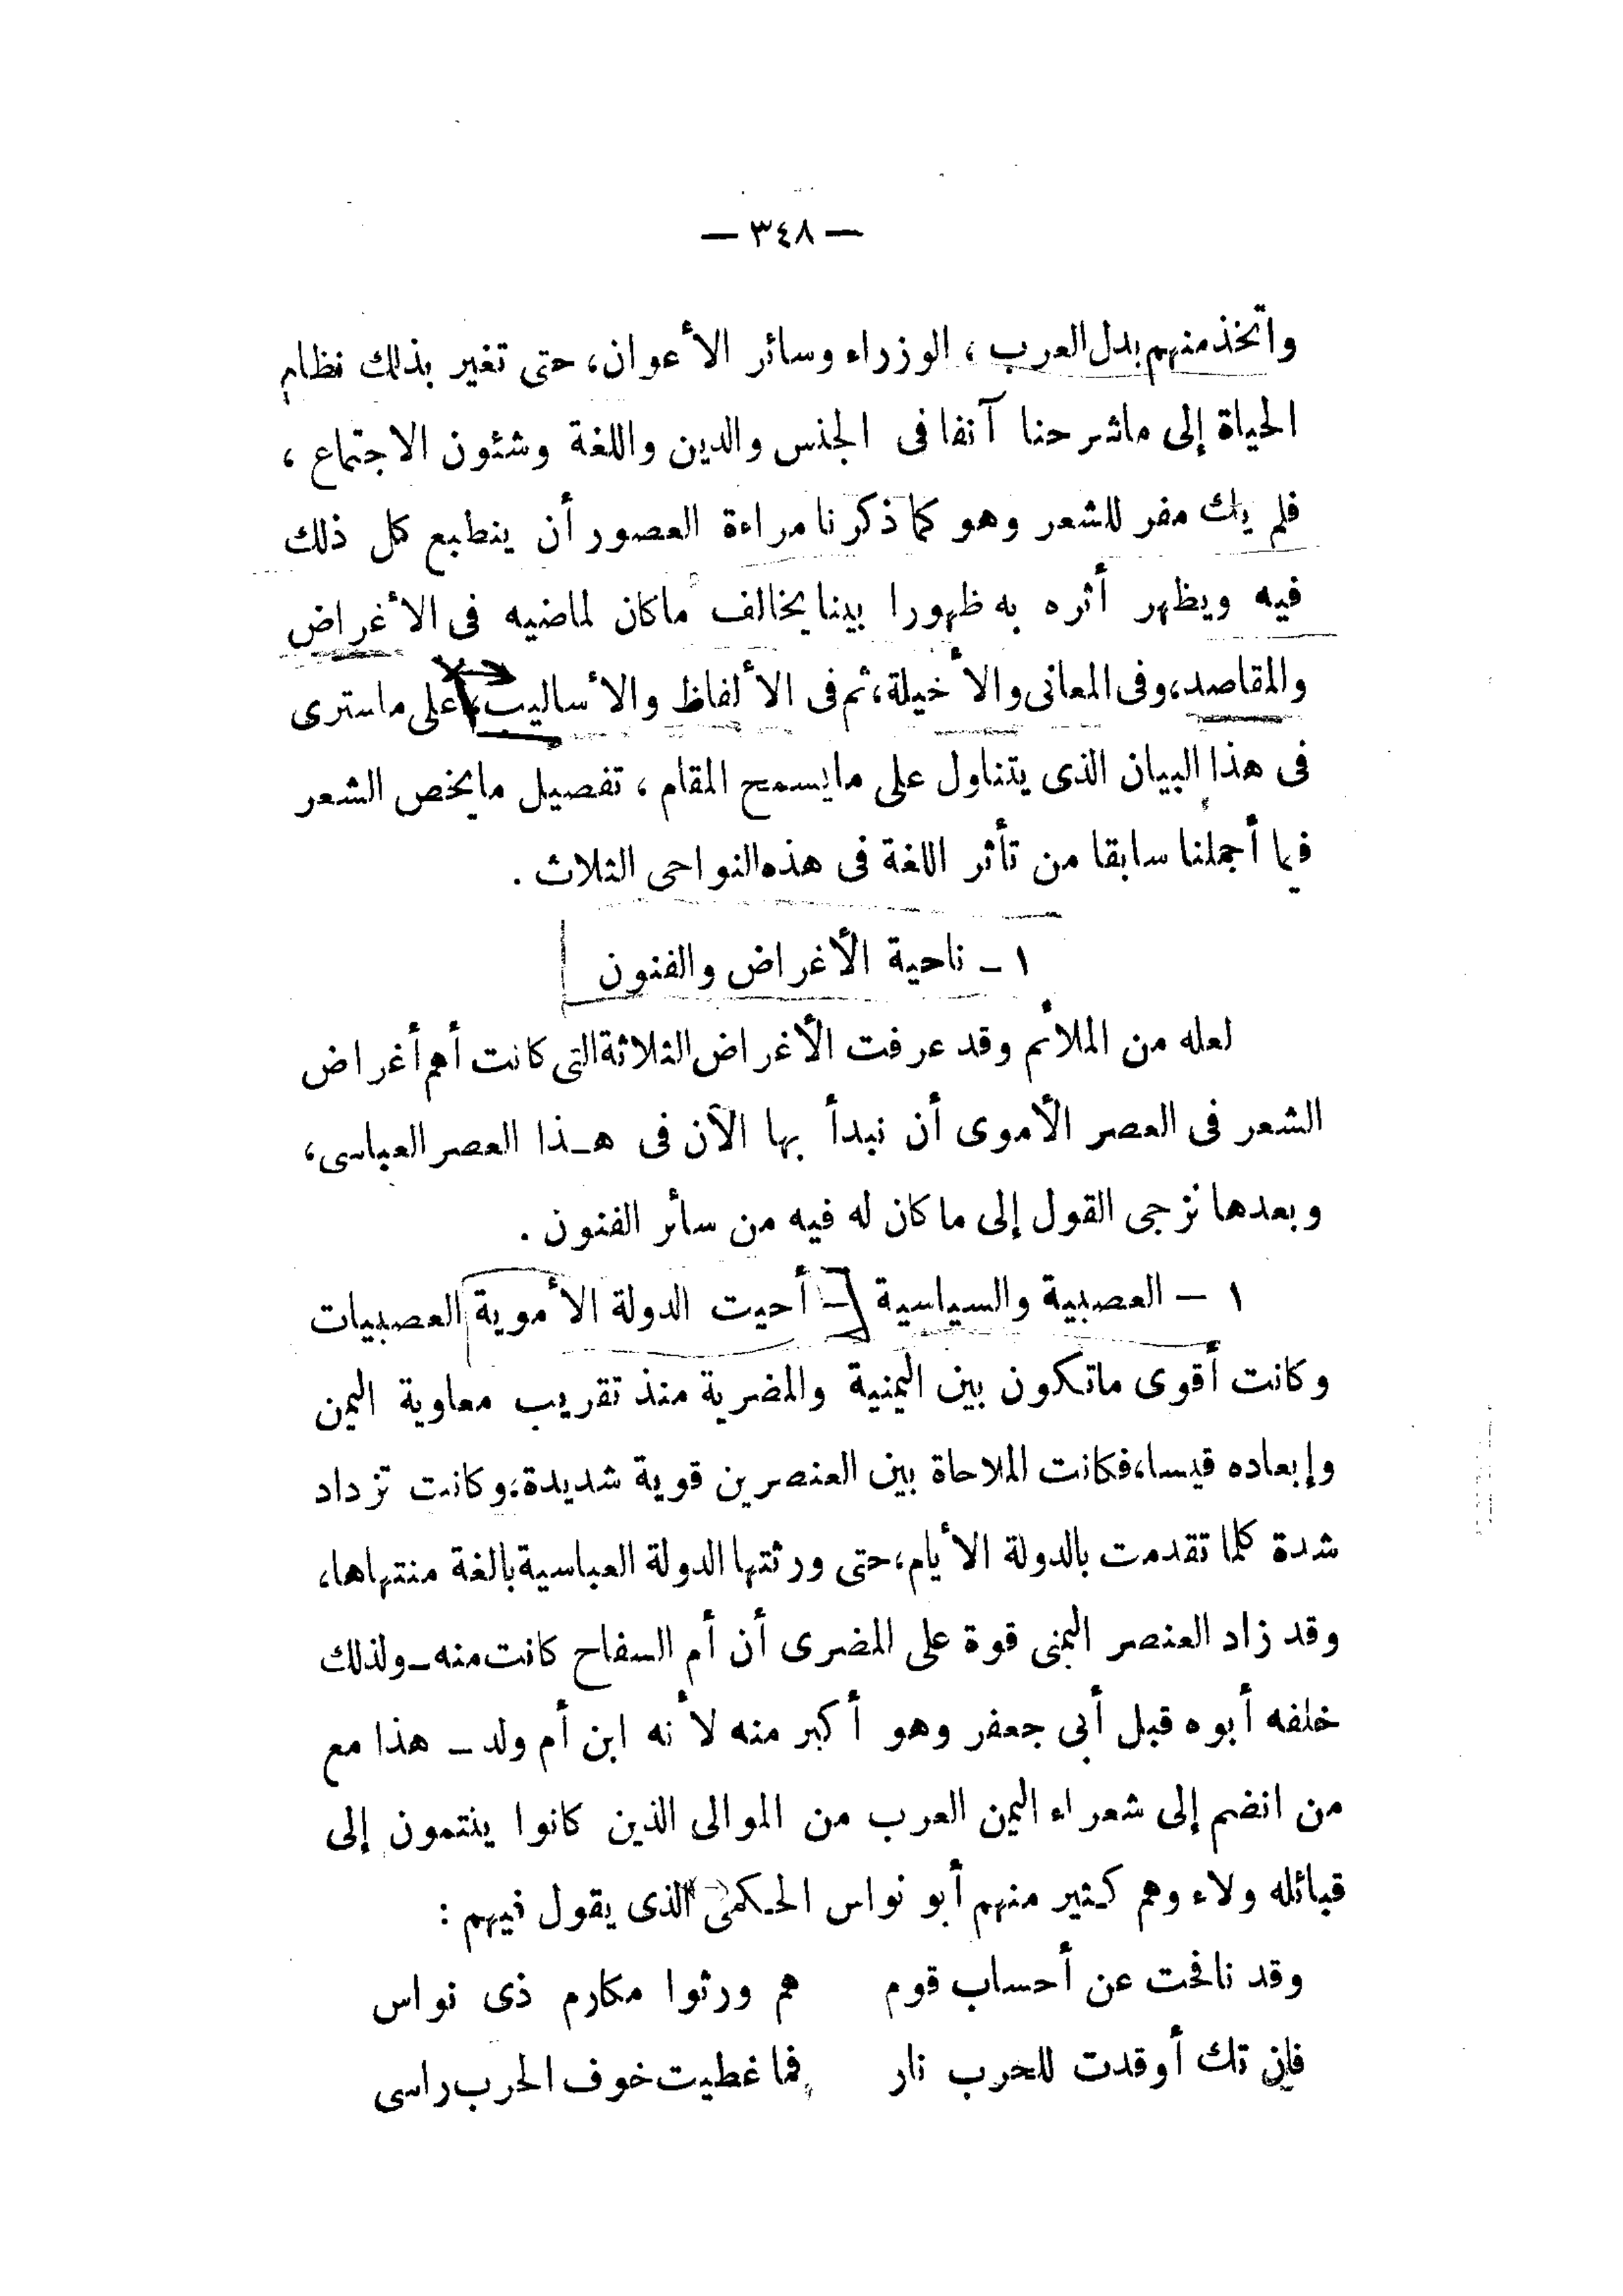 — ٣٤٨ —
واتخذ منهم بدل العرب ، الوزراء وسائر الأعوان، حتى تغير بذلك نظام
الحياة إلى ماشرحنا آنفا فى الجنس والدين واللغة وشئون الاجتماع ،
فلم يك مفر للشعر وهو كما ذكرنا مراءة العصور أن ينطبع كل ذلك
فيه ويظهر أثره به ظهورا بينا يخالف ماكان لماضيه فى الأغراض
والمقاصد، وفى المعانى والأخيلة، ثم فى الألفاظ والأساليب، على ماسترى
فى هذا البيان الذى يتناول على مايسمح المقام ، تفصيل مايخص الشعر
فيما أجملنا سابقا من تأثر اللغة فى هذه النواحى الثلاث .
١ - ناحية الأغراض والفنون
لعله من الملائم وقد عرفت الأغراض الثلاثة التى كانت أهم أغراض
الشعر فى العصر الأموى أن نبدأ بها الآن فى هـذا العصر العباسى،
وبعدها نزجى القول إلى ما كان له فيه من سائر الفنون .
١ — العصبية والسياسية — أحيت الدولة الأموية العصبيات
وكانت أقوى ماتكون بين اليمنية والمضرية منذ تقريب معاوية اليمن
وإبعاده قيسا، فكانت الملاحاة بين العنصرين قوية شديدة، وكانت تزداد
شدة كلما تقدمت بالدولة الأيام، حتى ورثتها الدولة العباسية بالغة منتهاها،
وقد زاد العنصر اليمنى قوة على المضرى أن أم السفاح كانت منه - ولذلك
خلفه أبوه قبل أبى جعفر وهو أكبر منه لأنه ابن أم ولد - هذا مع
من انضم إلى شعراء اليمن العرب من الموالى الذين كانوا ينتمون إلى
قبائله ولاء وهم كثير منهم أبو نواس الحكمى الذى يقول فيهم :
وقد نافحت عن أحساب قوم هم ورثوا مكارم ذى نواس
فإن تك أوقدت للحرب نار فما غطيت خوف الحرب راسى